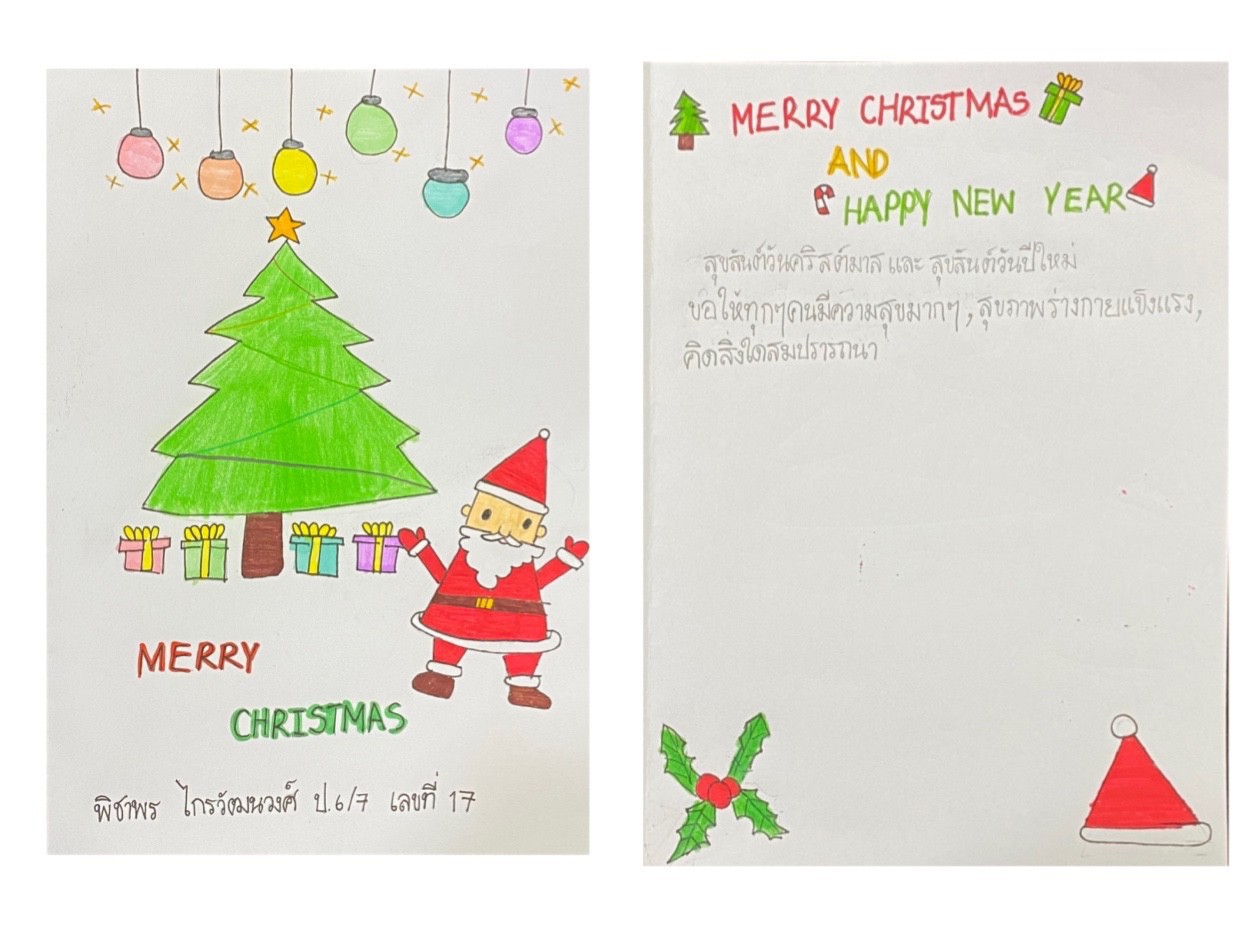 MERRY
CHRISTMAS
พิชาพร ไกรวัฒนวงศ์ ป.6/7 เลขที่ 17
MERRY CHRISTMAS
AND
HAPPY NEW YEAR
สุขสันต์วันคริสต์มาส และ สุขสันต์วันปีใหม่
ขอให้ทุกๆคนมีความสุขมากๆ, สุขภาพร่างกายแข็งแรง,
คิดสิ่งใดสมปรารถนา